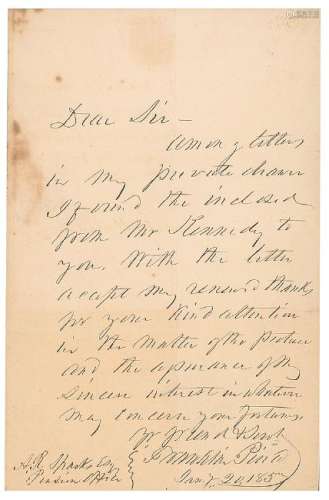 Dear Sir -
Among letters
in my private drawer
I found the inclosed
from Mr Kennedy to
you. With the letter
accept my renewed thanks
for your kind attention
in the matter of the Picture
and the assurance of my
sincere interest in whatever
may concern your fortunes
Yr friend & Servt
Franklin Pierce
A.R. Sparks Esq
Pension Office
Jany 20, 185